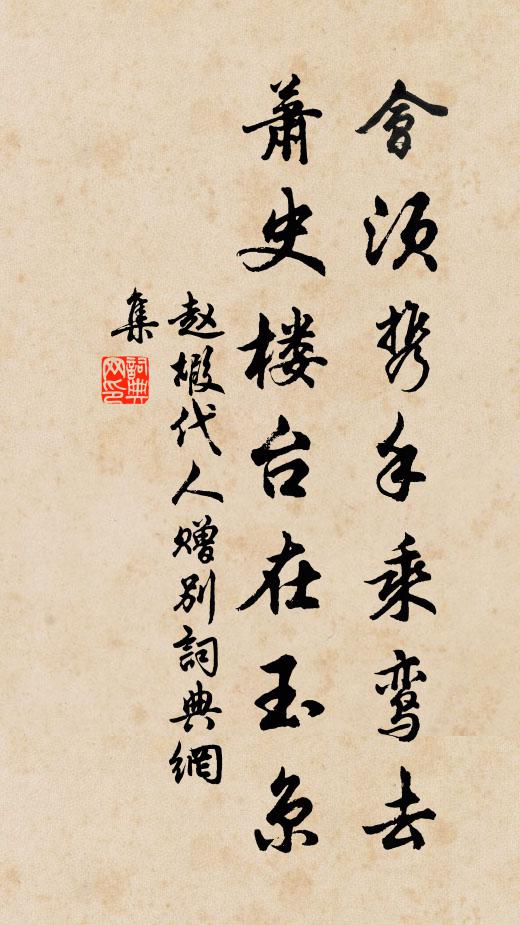 會须携手乘鸾去
蕭史楼台在玉京
赵嘏代人赠别詞典網
集
詞典
网印